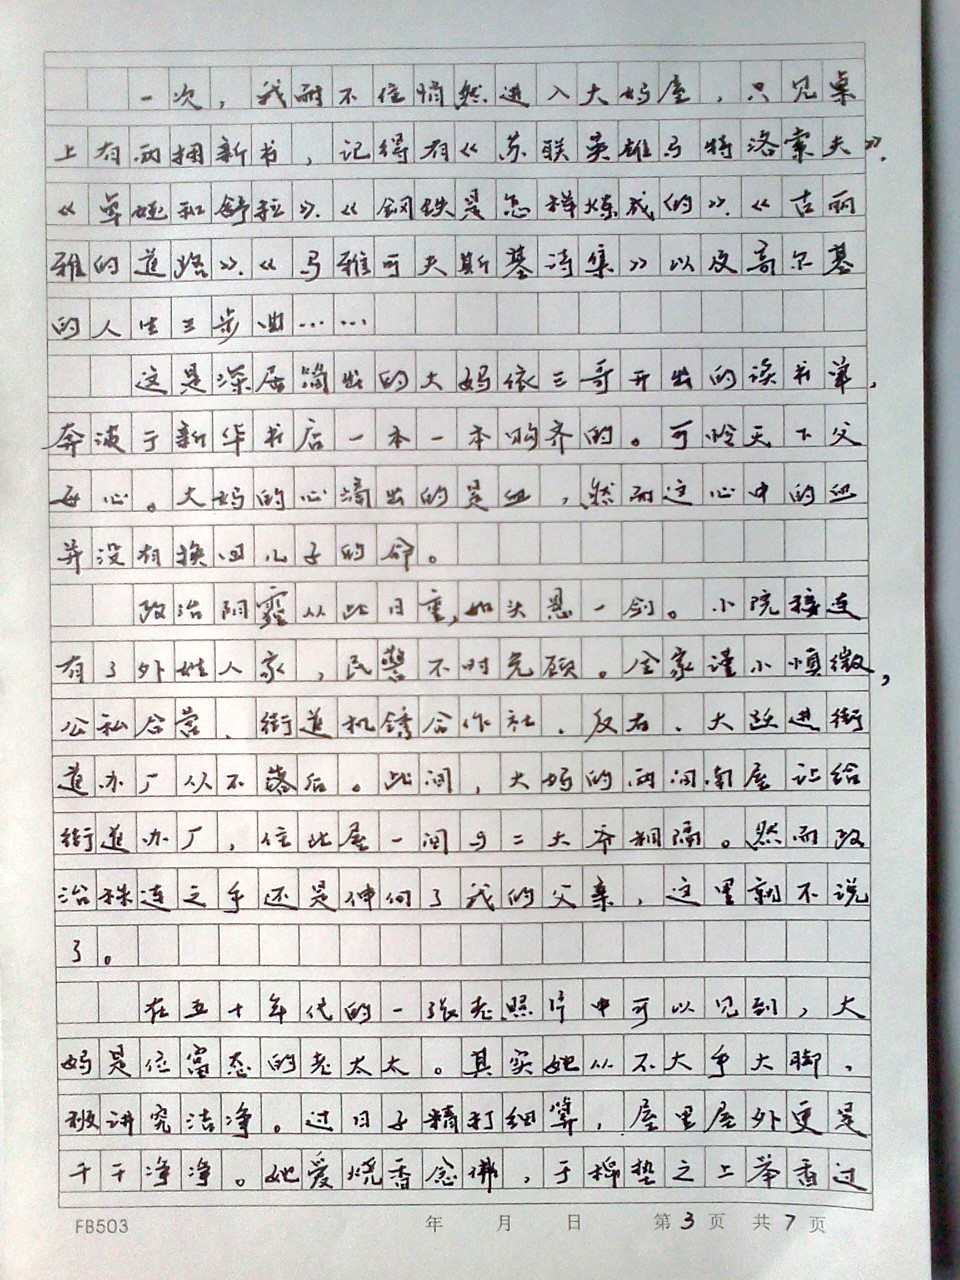 一次，我耐不住悄然进入大妈屋，只见桌
上有两捆新书，记得有《苏联英雄马特洛索夫》.
《卓娅和舒拉》.《钢铁是怎样炼成的》.《古丽
雅的道路》.《马雅可夫斯基诗集》以及高尔基
的人生三步曲……
这是深居简出的大妈依三哥开出的读书单，
奔波于新华书店一本一本购齐的。可怜天下父
母心。大妈的心滴出的是血，然而这心中的血
并没有换回儿子的命。
政治阴霾从此日重，如头悬一剑。小院接连
有了外姓人家，民警不时光顾。全家谨小慎微，
公私合营、街道机锈合作社、反右、大跃进街
道办厂从不落后。此间，大妈的两间南屋让给
街道办厂，住北屋一间与二大爷相隔。然而政
治株连之手还是伸向了我的父亲，这里就不说
了。
在五十年代的一张老照片中可以见到，大
妈是位富态的老太太。其实她从不大手大脚，
极讲究洁净。过日子精打细算，屋里屋外更是
干干净净。她爱烧香念佛，于棉垫之上举香过
FB503 年 月 日 第3页 共7页